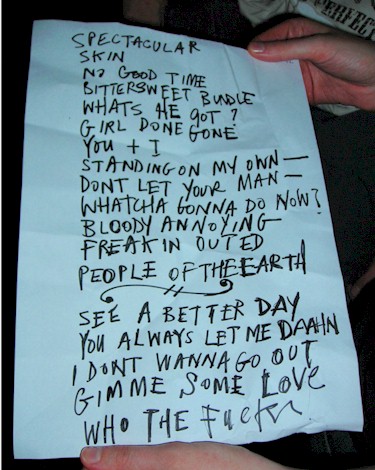 SPECTACULAR
SKIN
NO GOOD TIME
BITTERSWEET BUNDLE
WHATS HE GOT ?
GIRL DONE GONE
YOU + I
STANDING ON MY OWN —
DONT LET YOUR MAN —
WHATCHA GONNA DO NOW?
BLOODY ANNOYING
FREAKIN OUTED
PEOPLE OF THE EARTH
SEE A BETTER DAY
YOU ALWAYS LET ME DAAHN
I DONT WANNA GO OUT
GIMME SOME LOVE
WHO THE
PERFECT